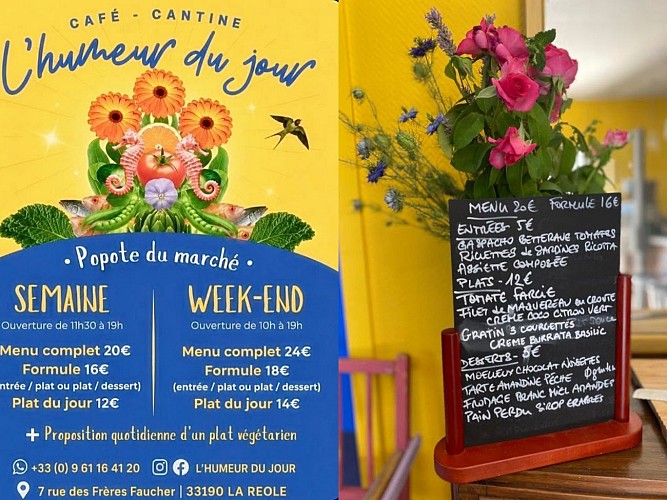 CAFÉ - CANTINE
L'humeur du jour
• Popote du marché •
SEMAINE
Ouverture de 11h30 à 19h
Menu complet 20€
Formule 16€
entrée / plat ou plat / dessert)
Plat du jour 12€
WEEK-END
Ouverture de 10h à 19h
Menu complet 24€
Formule 18€
(entrée / plat ou plat / dessert)
Plat du jour 14€
+ Proposition quotidienne d'un plat végétarien
+33 (0) 9 61 16 41 20
L'HUMEUR DU JOUR
7 rue des Frères Faucher | 33190 LA REOLE
MENU 20€ FORMULE 16€
ENTRÉES 5€
GASPACHO BETTERAVE TOMATES
RILLETTES de SARDINES RICOTTA
ASSIETTE COMPOSÉE
PLATS - 12€
TOMATE FARCIE
FILET de MAQUEREAU EN CROUTE
CRÈME COCO CITRON VERT
GRATIN 3 COURGETTES
CRÈME BURRATA BASILIC
DESSERTS - 5€
MOELLEUX CHOCOLAT NOISETTES
TARTE AMANDINE PÊCHE
FROMAGE BLANC MIEL AMANDES
PAIN PERDU SIROP ERABLES